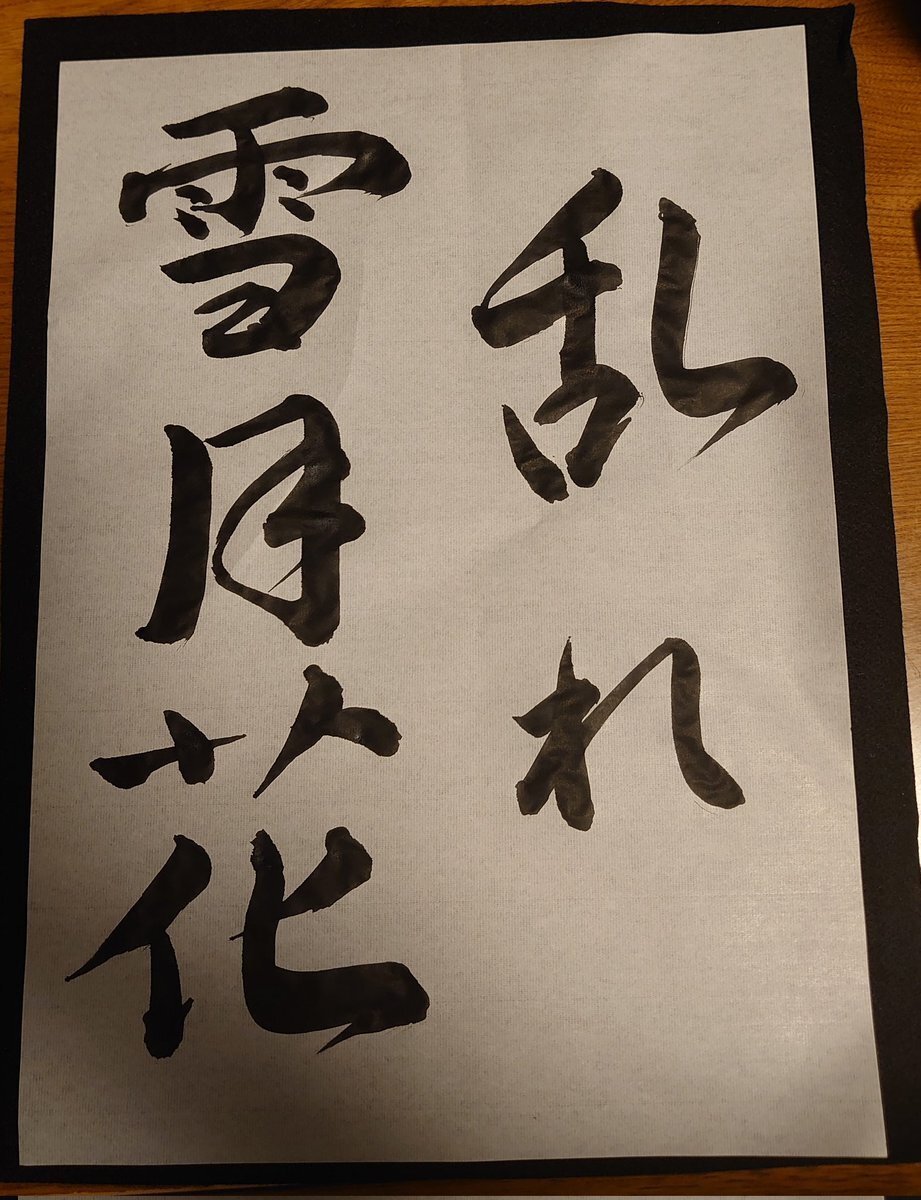 乱れ
雪月花